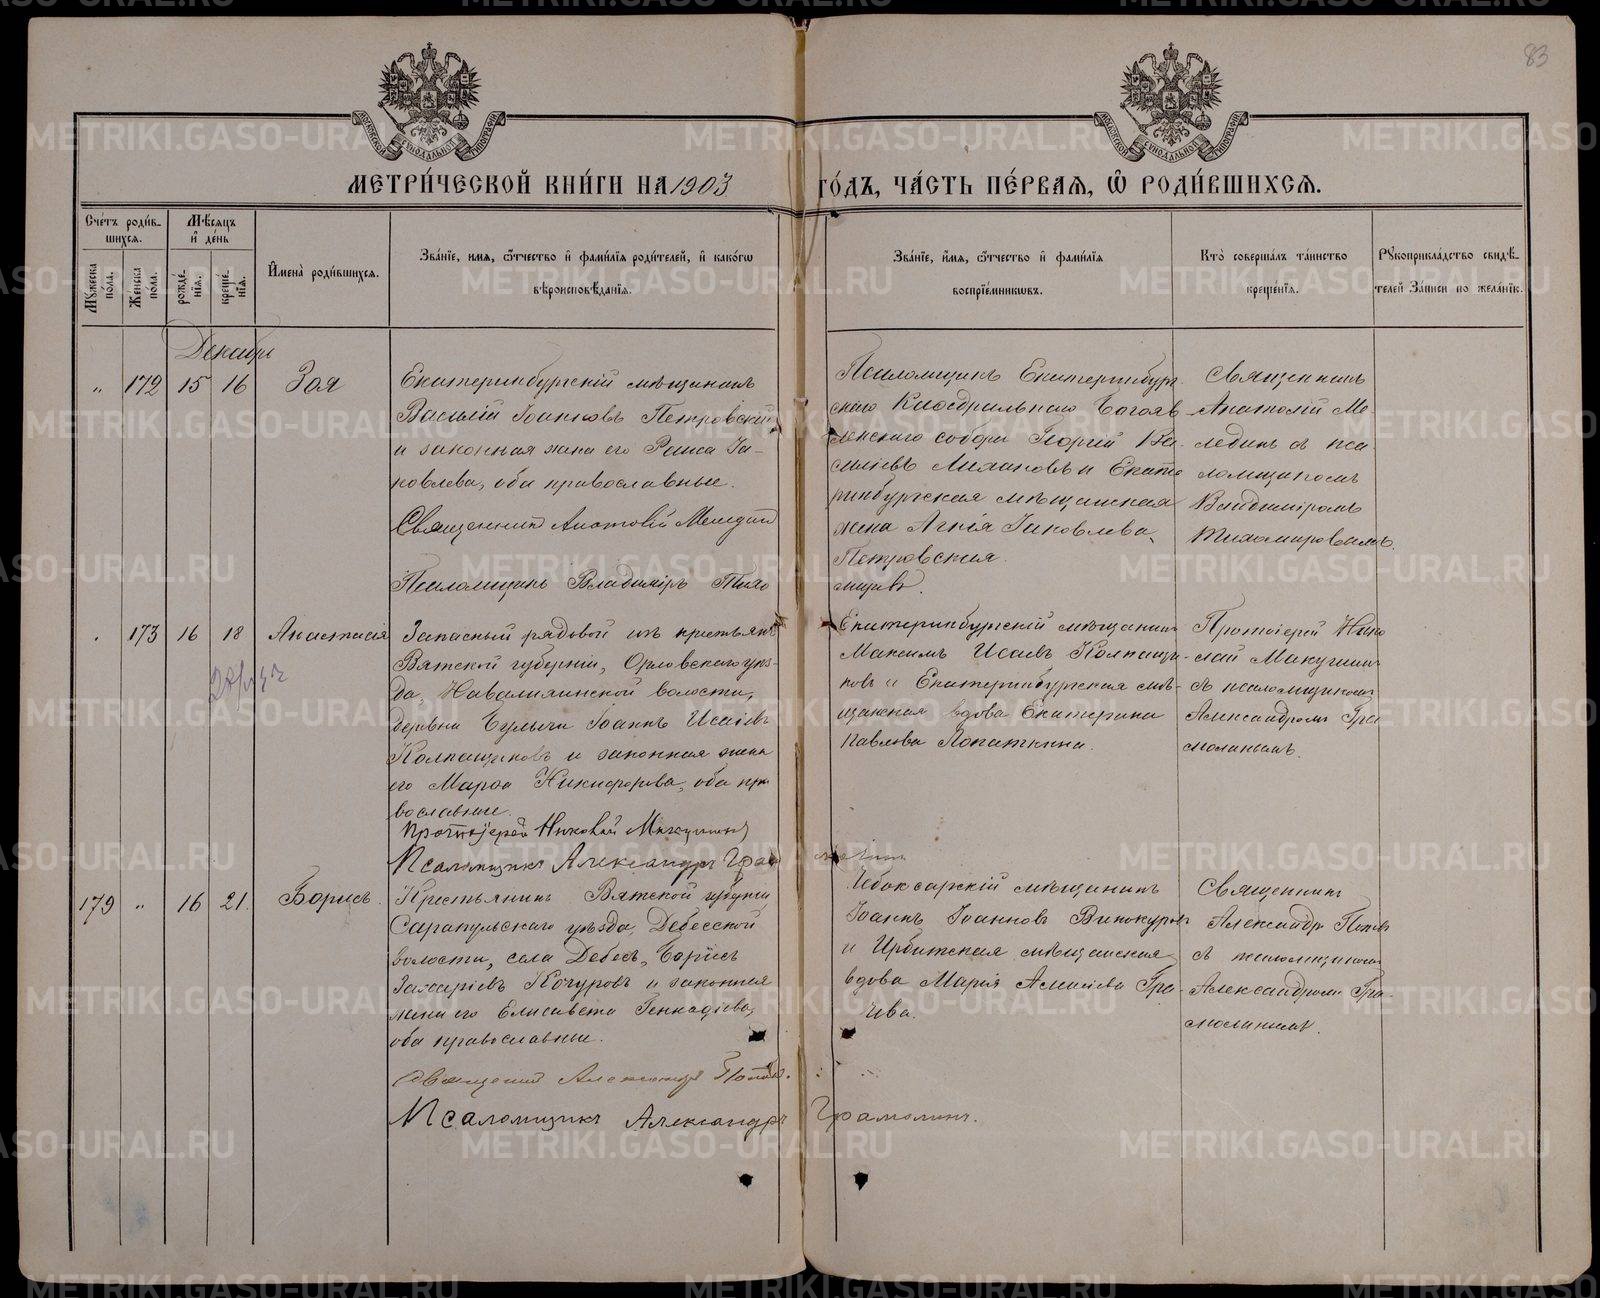 83
МОСКОВСКОЙ СѴНОДАЛЬНОЙ ТИПОГРАФІИ
МОСКОВСКОЙ СѴНОДАЛЬНОЙ ТИПОГРАФІИ
МЕТРИ́ЧЕСКОЙ КНИ́ГИ НА 1903 ГО́ДЪ, ЧА́СТЬ ПЕ́РВАЯ, Ѽ РОДИ́ВШИХСЯ.
Сче́тъ роди́в-
шихся.
Мѣ́сяцъ
и де́нь
Му́жеска
по́ла.
Же́нска
по́ла.
рожде́-
нїя.
креще́-
нїя.
Имена̀ роди́вшихся.
Зва́нїе, имя, ѿчество и фами́лїя роди́телей, и како́гѡ
вѣроисповѣ́данїя.
Зва́нїе, и́мя, ѿчество и фами́лїя
воспрїе́мникѡвъ.
Кто̀ соверша́лъ та́инство
креще́нїя.
Рукоприкла́дство свидѣ́-
телей за́писи по жела́нїю.
Декабрь
" 172 15 16 Зоя
Екатеринбургскій мѣщанинъ
Василій Іоанновъ Петровскій
и законная жена его Раиса Іа-
ковлева, оба православные.
Священникъ Анатолій Мелединъ
Псаломщикъ Владиміръ Тихо
Псаломщикъ Екатеринбург-
скаго Каѳедральнаго Богояв-
ленскаго собора Георгій Ва-
сильевъ и Екате
ринбургская мѣщанская
жена Агнія Іаковлева
Петровская.
мировъ.
Священникъ
Анатолій Ме-
лединъ съ пса
ломщикомъ
Владиміромъ
Тихомировымъ.
" 173 16 18 Анастасія
Запасный рядовой изъ крестьянъ
Вятской губерніи, Орловскаго уѣз-
да, волости,
деревни Іоаннъ Исаевъ
Колпащиковъ и законная жена
его Марѳа Никифорова, оба пра
вославные.
Протоіерей Николай
Псаломщикъ Александръ Грамолинъ
Екатеринбургскій мѣщанинъ
Максимъ Исаевъ Колпащи-
ковъ и Екатеринбургская мѣ-
щанская вдова Екатерина
Павлова Лопаткина.
Протоіерей Нико
лай
съ псаломщикомъ
Александромъ Гра
молинымъ.
179 " 16 21. Борисъ.
Крестьянинъ Вятской губерніи
Сарапульскаго уѣзда, Дебесской
волости, села Дебесъ, Борисъ
Захаріевъ Кочуровъ и законная
жена его Елисавета Геннадіева,
оба православные.
Священникъ Александръ Поповъ.
Псаломщикъ Александръ Грамолинъ.
Чебоксарскій мѣщанинъ
Іоаннъ Іоанновъ Винокуровъ
и Ирбитская мѣщанская
вдова Марія Гра-
чева.
Священникъ
Александръ Поповъ
съ псаломщикомъ
Александромъ Гра-
молинымъ.
METRIKI.GASO-URAL.RU